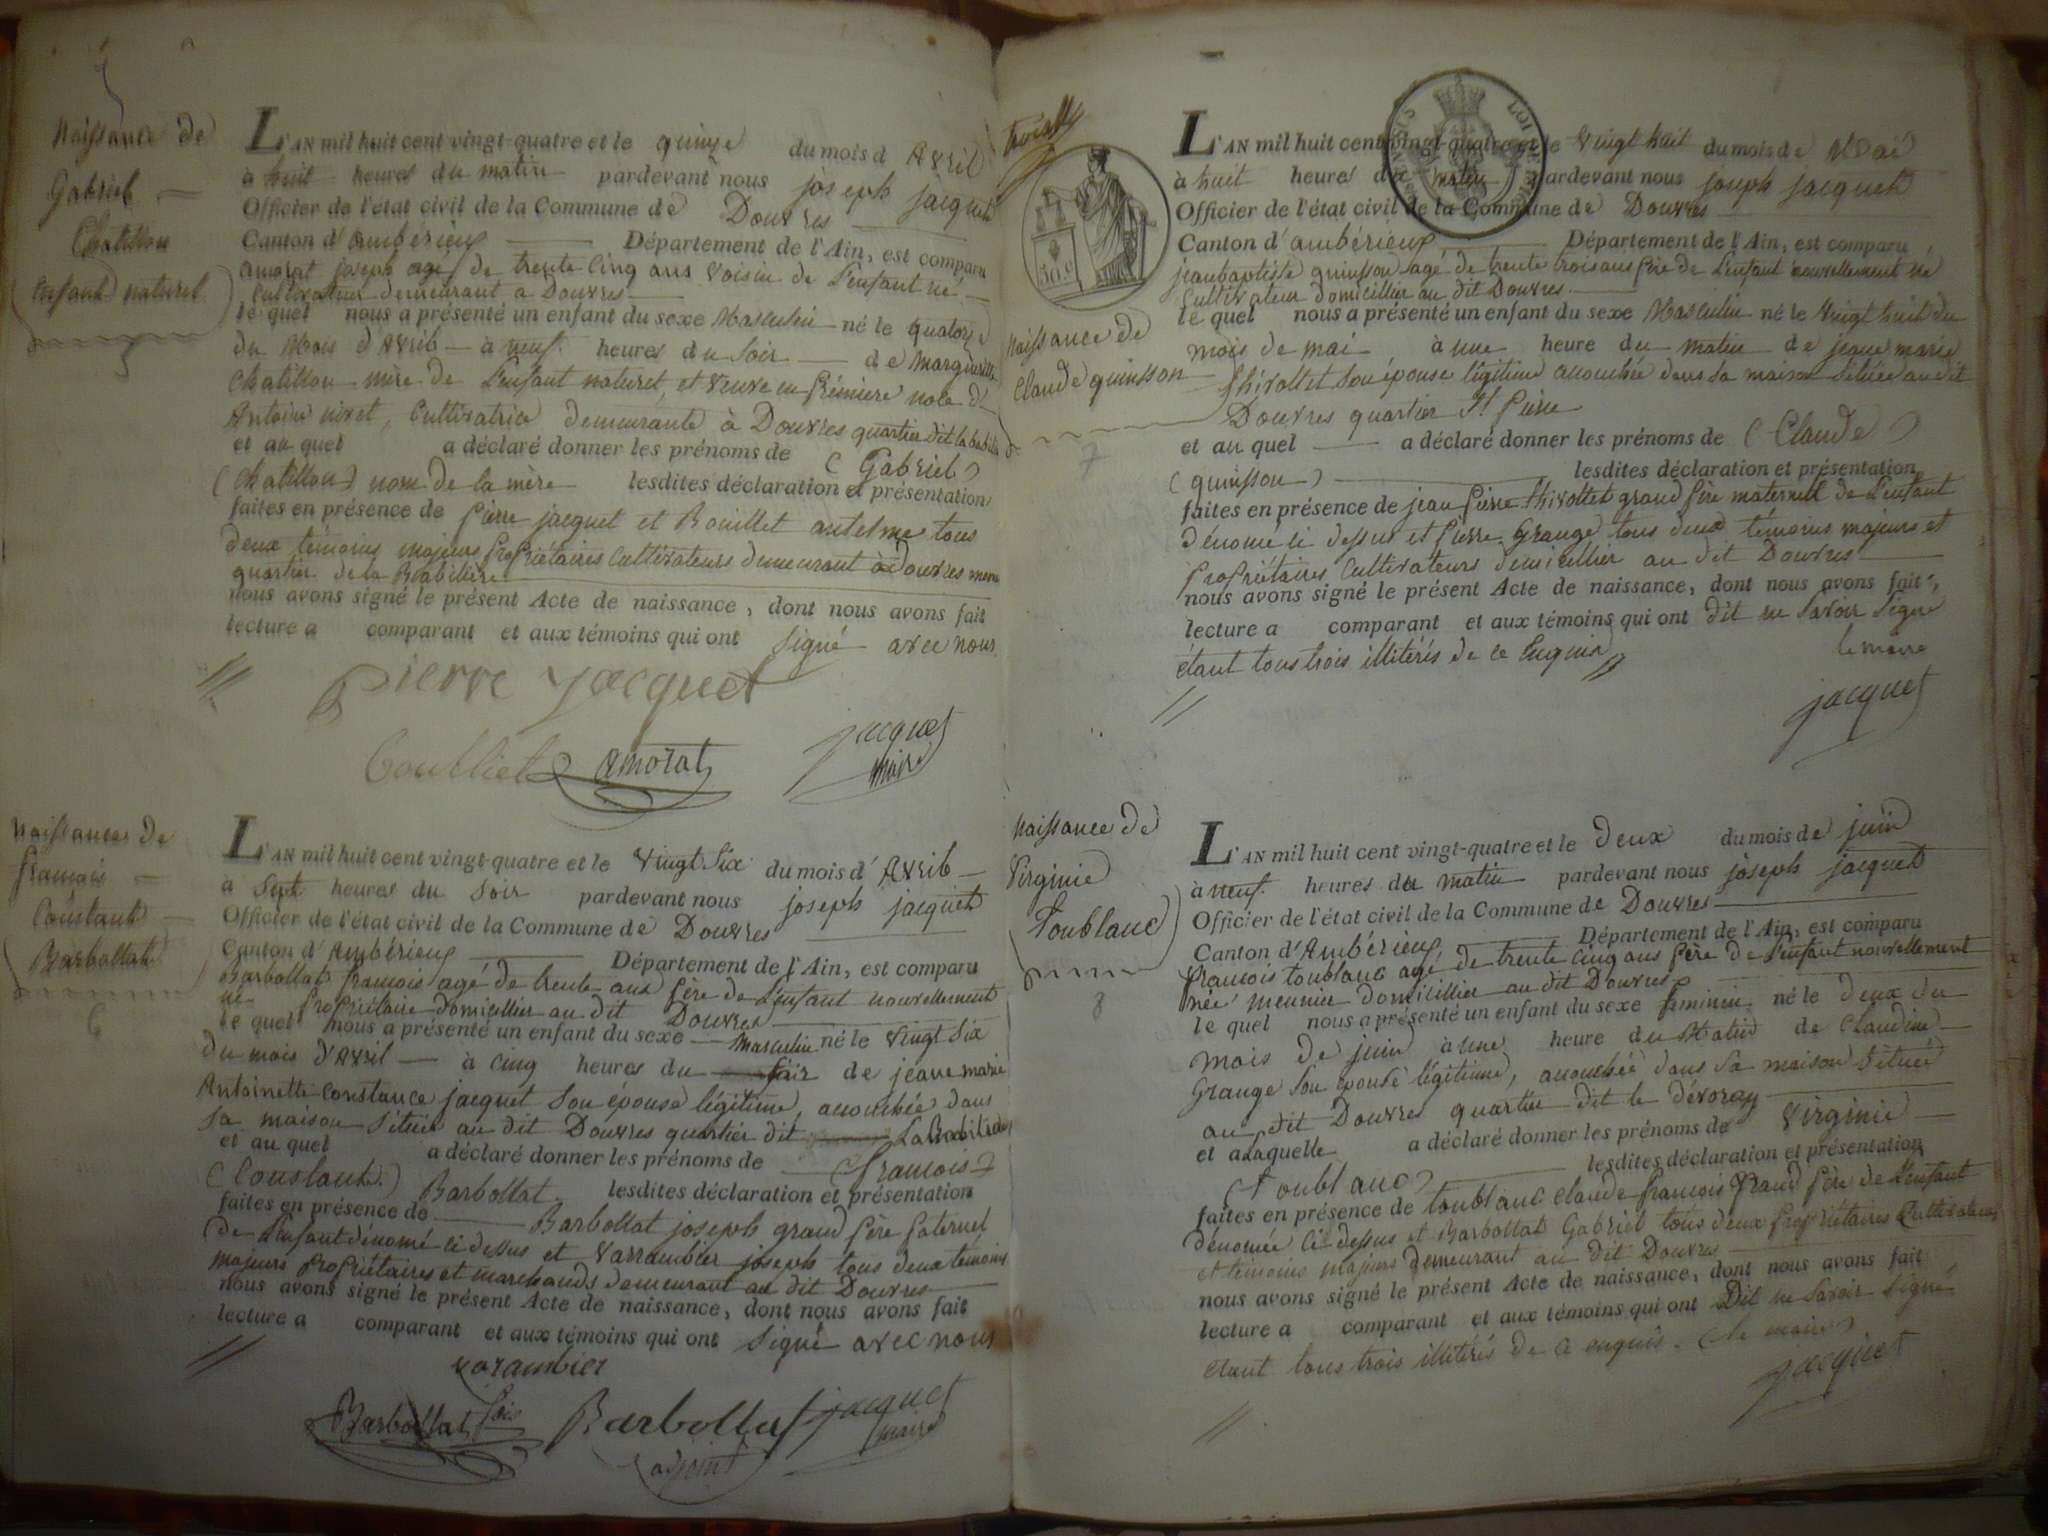 Naissance de
Gabriel
Chatillon
enfant naturel
5
L'AN mil huit cent vingt-quatre et le quinze du mois d'Avril
à huit heures du matin pardevant nous joseph jacquet
Officier de l'état civil de la Commune de Douvres
Canton d'ambérieux Département de l'Ain, est comparu
amorat joseph agé de trente cinq ans voisin de L'enfant né
cultivateur demeurant a Douvres
le quel nous a présenté un enfant du sexe Masculin né le quatorze
du Mois d'Avril à neuf heures du Soir de Margueritte
Chatillon mère de L'enfant naturel, et veuve en première noce d'
Antoine nivet, Cultivatrice demeurante à Douvres quartier dit la babiliere
et au quel a déclaré donner les prénoms de (Gabriel)
(Chatillon) nom de la mère lesdites déclaration et présentation
faites en présence de pierre jacquet et Bouillet antelme tous
deux témoins majeurs propriétaires Cultivateurs demeurant à Douvres meme
quartier de la Babiliere
nous avons signé le présent Acte de naissance, dont nous avons fait
lecture a comparant et aux témoins qui ont signé avec nous
Pierre Jacquet
amorat
jacquet
maire
Naissance de
françois
Constant
Barbollat
6
L'AN mil huit cent vingt-quatre et le vingt Six du mois d'Avril
à Sept heures du Soir pardevant nous joseph jacquet
Officier de l'état civil de la Commune de Douvres
Canton d'Ambérieux Département de l'Ain, est comparu
Barbollat françois agé de trente ans père de L'enfant nouvellement
né propriétaire domicillier au dit Douvres
le quel nous a présenté un enfant du sexe masculin né le vingt Six
du mois d'Avril à cinq heures du soir de jeane marie
Antoinette constance jacquet Son épouse légitime, accouchée dans
Sa maison Située au dit Douvres quartier dit La Babiliere
et au quel a déclaré donner les prénoms de (françois)
(Constant) Barbollat lesdites déclaration et présentation
faites en présence de Barbollat joseph grand père paternel
de L'enfant dénomé ci dessus et varrambier joseph tous deux temoins
majeurs Propriétaires et marchands demeurant au dit Douvres
nous avons signé le présent Acte de naissance, dont nous avons fait
lecture a comparant et aux témoins qui ont signé avec nous
varambier
Barbollat fois Barbollat jacquet
adjoint maire
30 c
Naissance de
Claude quinsson
7
L'AN mil huit cent vingt-quatre et le vingt huit du mois de Mai
à huit heures du matin pardevant nous joseph jacquet
Officier de l'état civil de la Commune de Douvres
Canton d'ambérieux Département de l'Ain, est comparu
jean baptiste quinsson agé de trente trois ans père de L'enfant nouvellement né
Cultivateur domicillier au dit Douvres
le quel nous a présenté un enfant du sexe Masculin né le vingt huit du
mois de mai à une heure du matin de jeane marie
thivollet Son épouse légitime accouchée dans Sa maison Située au dit
Douvres quartier St Pierre
et au quel a déclaré donner les prénoms de (Claude)
(quinsson) lesdites déclaration et présentation
faites en présence de jean pierre thivollet grand père maternel de L'enfant
dénomé ci dessus et pierre Grange tous deux témoins majeurs et
propriétaires Cultivateurs domicillier au dit Douvres
nous avons signé le présent Acte de naissance, dont nous avons fait
lecture a comparant et aux témoins qui ont dit ne Savoir Signé
étant tous trois illitérés de ce Enquis
le maire
jacquet
Naissance de
Virginie
Toublanc
8
L'AN mil huit cent vingt-quatre et le deux du mois de juin
à neuf heures du matin pardevant nous joseph jacquet
Officier de l'état civil de la Commune de Douvres
Canton d'Ambérieux Département de l'Ain, est comparu
françois toublanc agé de trente cinq ans père de L'enfant nouvellement
née meunier domicillier au dit Douvres
le quel nous a présenté un enfant du sexe féminin né le deux du
mois de juin à une heure du Matin de Claudine
Grange Son épouse légitime, accouchée dans Sa maison Située
au dit Douvres quartier dit le dévoray
et a Laquelle a déclaré donner les prénoms de Virginie
(Toublanc) lesdites déclaration et présentation
faites en présence de toublanc claude françois Grand père de L'enfant
dénomée ci dessus et Barbollat Gabriel tous deux propriétaires Cultivateurs
et témoins majeurs demeurant au dit Douvres
nous avons signé le présent Acte de naissance, dont nous avons fait
lecture a comparant et aux témoins qui ont Dit ne Savoir Signé
étant tous trois illitérés de ce enquis. (le maire)
jacquet